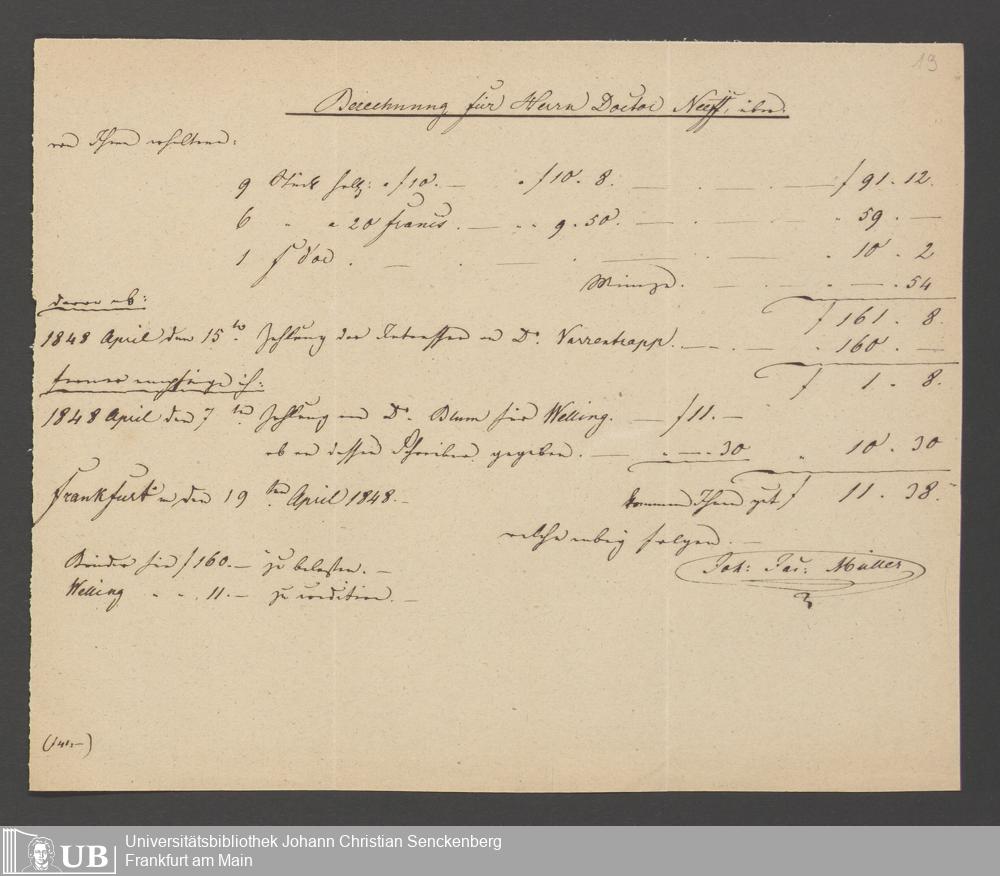 19
Berechnung für Herrn Doctor Neeff, über
von Ihm erhaltene:
9 Stück holl: a f 10. — a f 10. 8. — . — . — f 91. 12.
6 " a 20 Francs. — " " 9. 50. — " 59. —
1 f d'or. — . — . — " 10. 2
Münze. — . — . — 54
davon ab: f 161. 8.
1848 April den 15ten Zahlung der Interessen an Dr. Varrentrapp. — . — " 160. —
ferner empfinge ich: f 1. 8.
1848 April den 7ten Zahlung von Dr. Blum für Welling. — f 11. —
ab an dessen Schreiber gegeben. — " — . 30 " 10. 30
Frankfurt a/m den 19ten April 1848. — kommen Ihnen gut f 11. 38.
welche anbei folgen. —
Kinder für f 160. — zu belasten. —
Joh: Jac: Müller
Welling " " 11. — zu creditiren. —
UB
Universitätsbibliothek Johann Christian Senckenberg
Frankfurt am Main